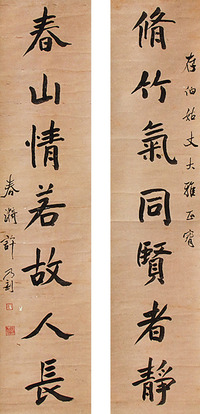 存伯姑丈大雅正寳
脩竹氣同賢者靜
春山情若故人長
春漪許乃剴